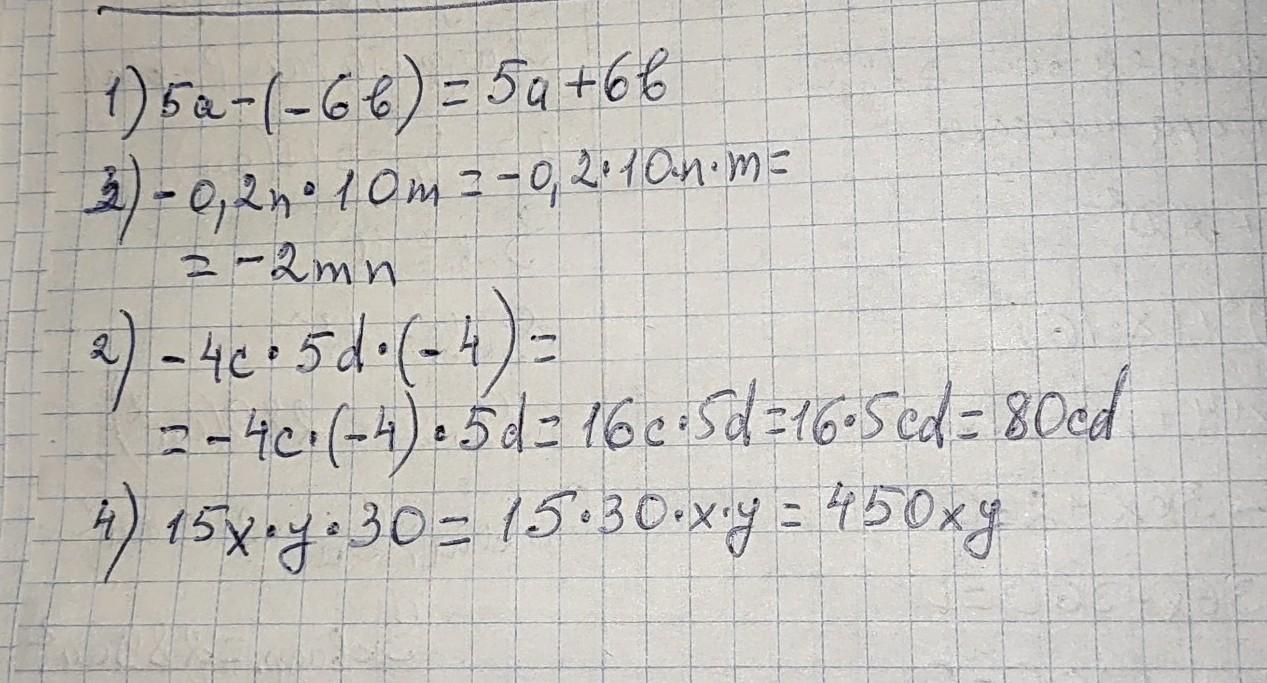 1) 5a-(-6b)=5a+6b
3) -0,2n·10m=-0,2·10·n·m=
=-2mn
2) -4c·5d·(-4)=
=-4c·(-4)·5d=16c·5d=16·5cd=80cd
4) 15x·y·30=15·30·x·y=450xy